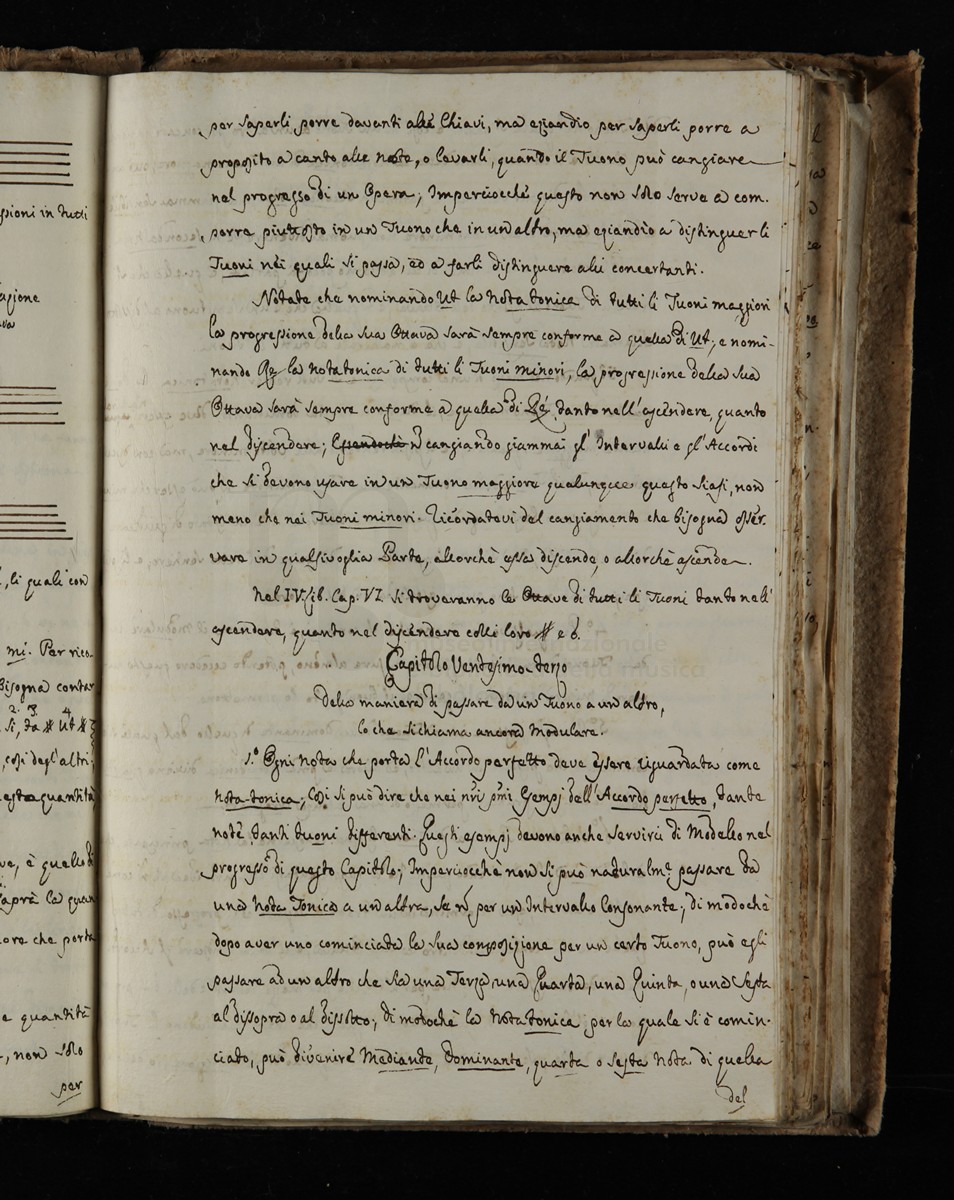 ssioni in tutti
agione
va
, li quali con
mi. Per rico-
Bisogna contar
2. 3. 4
Si, da # Ut #
, così degl'altri;
esta quantità
ve, è quello di
saprà la quan
ore che porta
e quantità
, non solo
per
per saperli porre davanti alle Chiavi, ma eziandio per saperli porre a
proposito a canto alle note, o levarli, quando il Tuono può cangiare
nel progresso di un Opera; Imperciocchè questo non solo serve a com.
porre piuttosto in un Tuono che in un altro, ma eziandìo a distinguer li
Tuoni nei quali si passa, ed a farli distinguere alli concertanti.
Notate che nominando Ut la Nota tonica di tutti li Tuoni maggiori
la progressione della sua Ottava sarà sempre conforme a quella di Ut; e nomi-
nando Re la nota tonica di tutti li Tuoni minori, la progressione della sua
Ottava sarà sempre conforme a quella di Ré tanto nell'ascendere, quanto
nel discendere; Essendochè ñ cangiando giammai gl'Intervalli e gl'Accordi
che si devono usare in un Tuono maggiore qualunque questo siasi, non
meno che nei Tuoni minori. Ricordatevi del cangiamento che bisogna osser.
vare in qualsivoglia Parte, allorchè essa discende, o allorchè ascende.
Nel IV. lib. Cap. VI. si troveranno le Ottave di tutti li Tuoni tanto nell'
ascendere, quanto nel discendere colli loro # e b.
Capitolo Ventesimo-terzo
Della maniera di passare da un Tuono a un altro,
lo che si chiama ancora Modulare.
1.º Ogni Nota che porta l'Accordo perfetto deve essere riguardata come
Nota-tonica; Così si può dire che nei nri pmi Esempj dell'Accordo perfetto, tante
note tanti tuoni differenti. Questi esempj devono anche servirci di Modello nel
progresso di questo Capitolo; Imperciocchè non si può naturalmte passare da
una Nota Tonica a un altra, se ñ per un Intervallo Consonante; di modochè
dopo aver uno cominciata la sua composizione per un certo Tuono, può egli
passare ad un altro che sia una Terza, una Quarta, una Quinta, o una Sesta
al dissopra o al dissotto; di modochè la Nota tonica, per la quale si è comin-
ciato, può divenire Mediante, Dominante, quarta o sesta Nota di quella
del